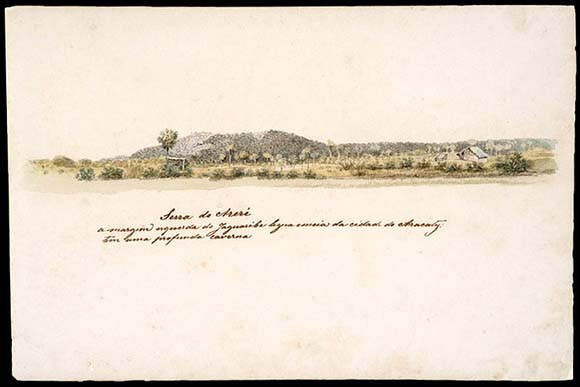 Serra do Areré
a margem esquerda do Jaguaribe legua emeia da cidade do Aracaty,
tem uma profunda caverna